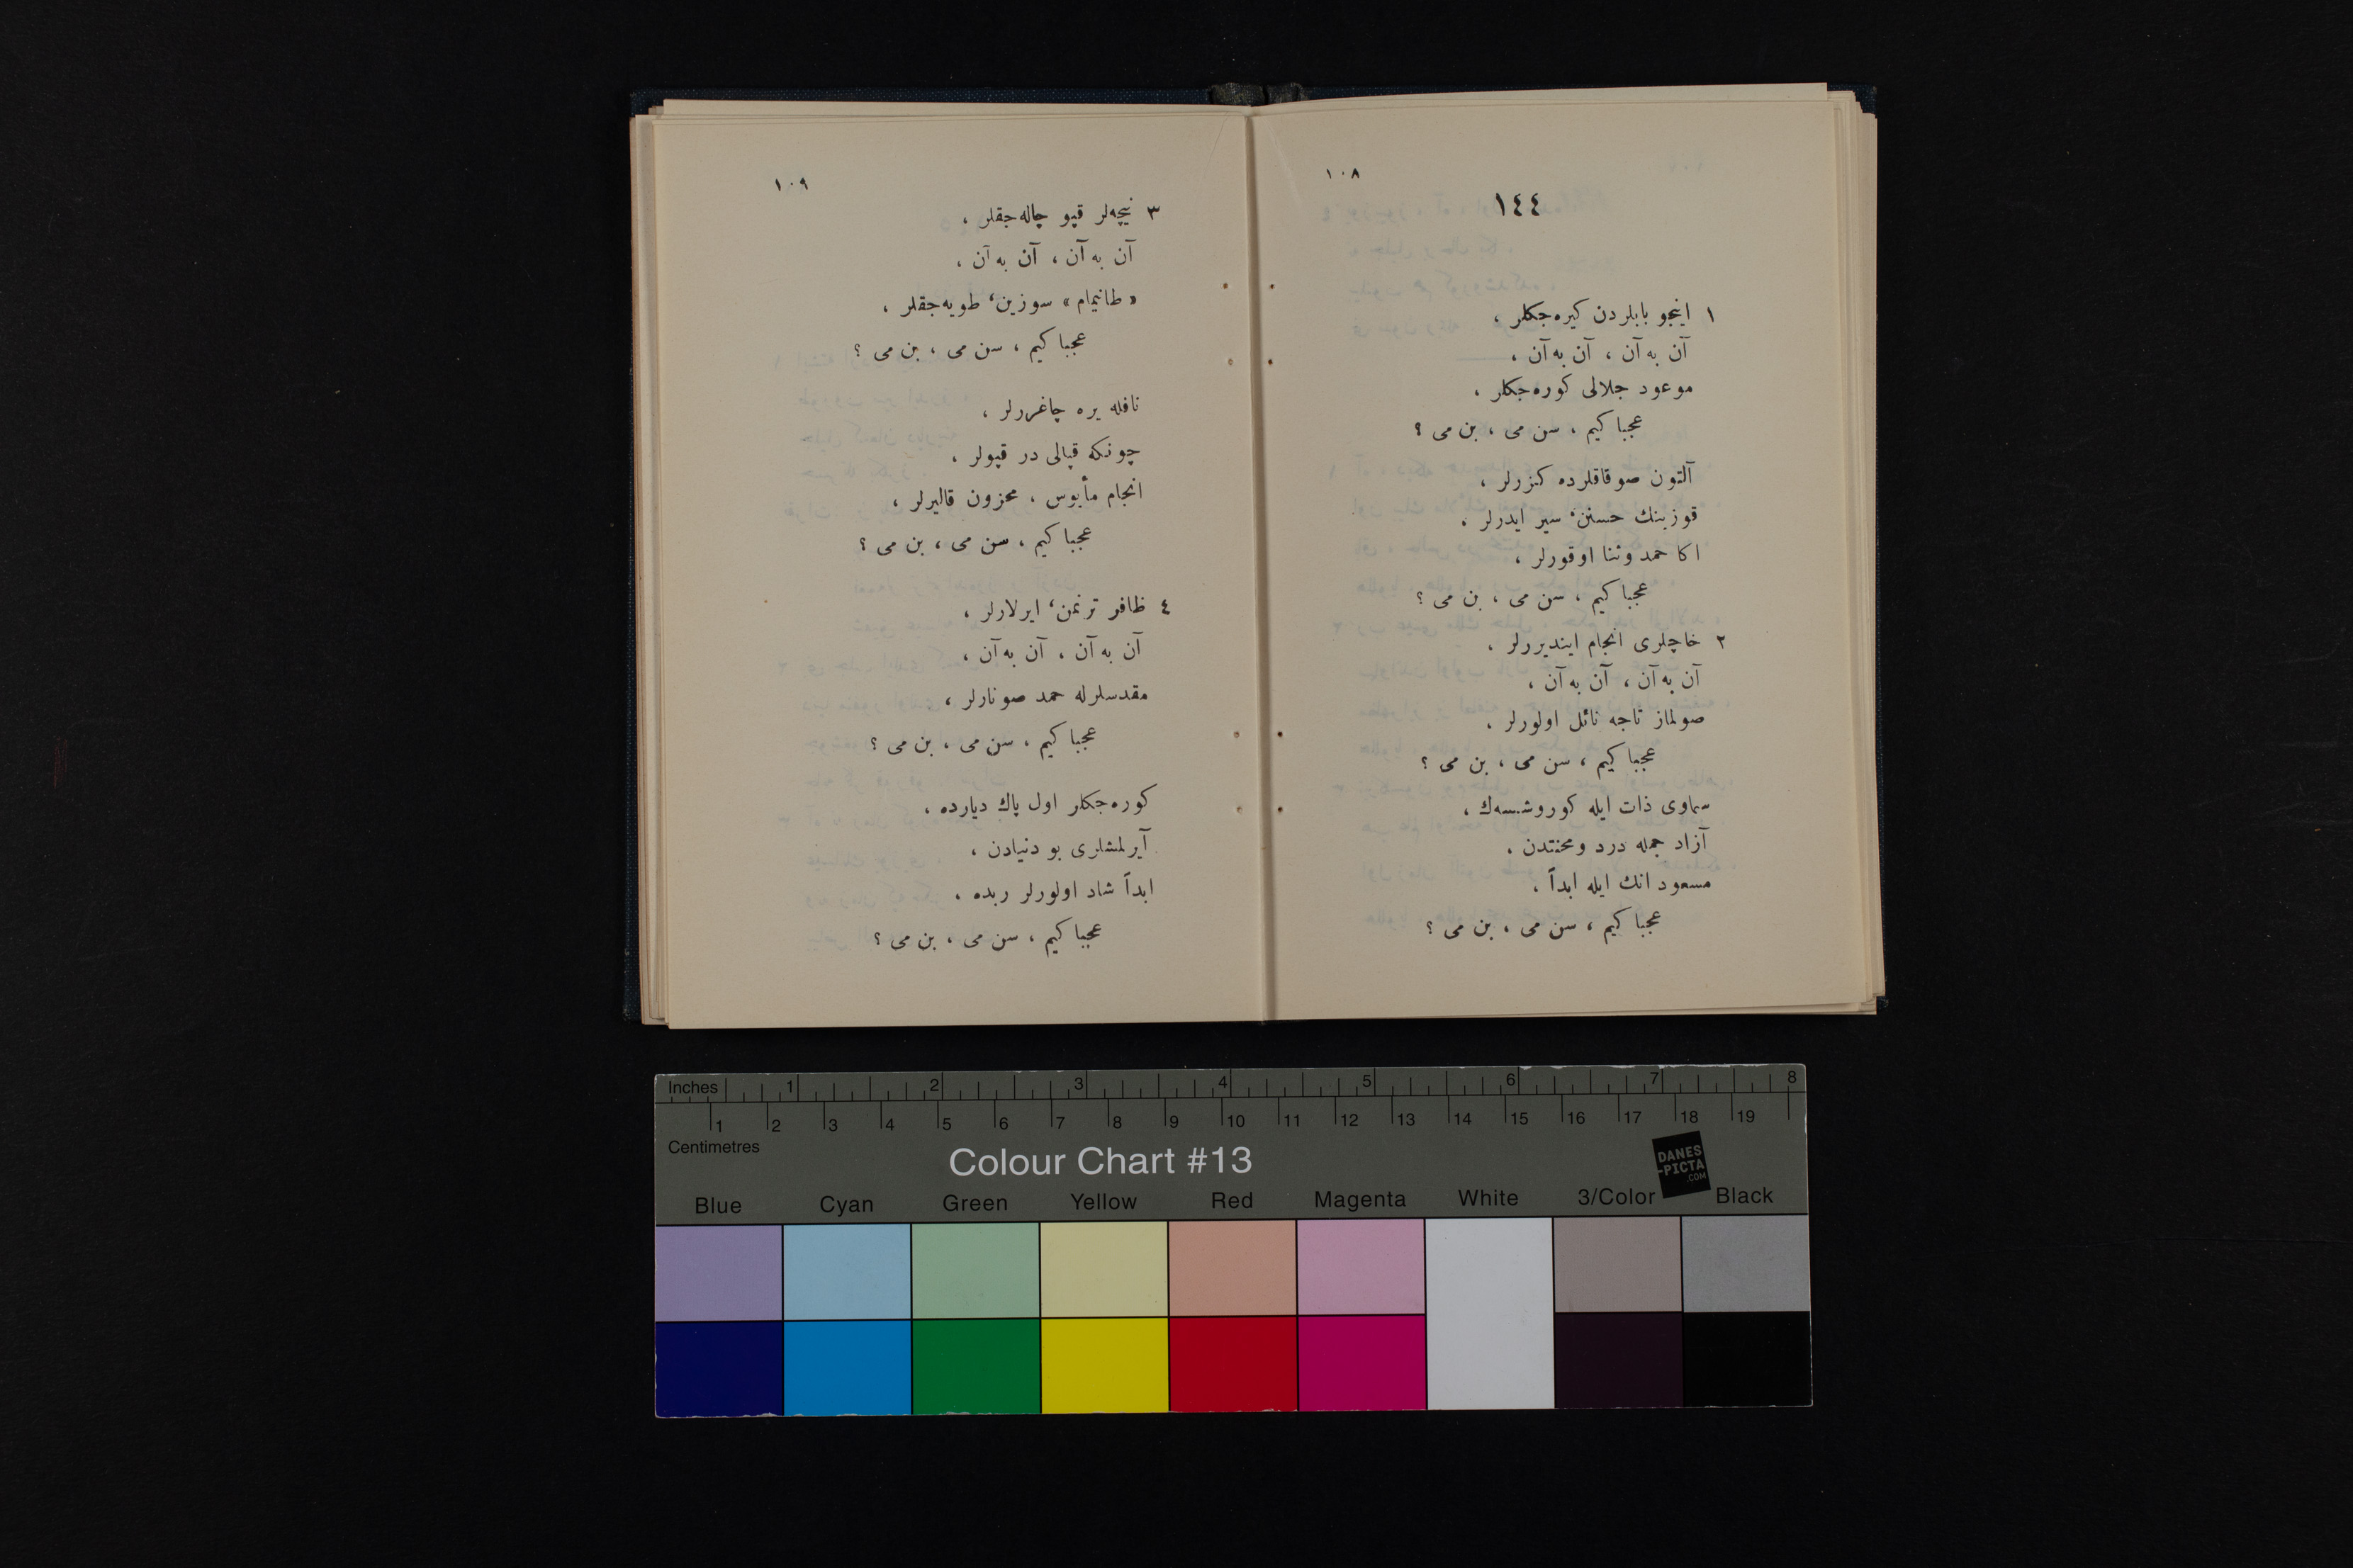 ١٠٨
١٤٤
١ اينجو بابلردن كيره‌جكلر ،
آن به آن ، آن به آن ،
موعود جلالى كوره‌جكلر ،
عجبا كيم ، سن مى ، بن مى ؟
آلتون صوقاقلرده كزرلر ،
قوزينك حسنن، سير ايدرلر ،
اكا حمد وثنا اوقورلر ،
عجبا كيم ، سن مى ، بن مى ؟
٢ خاچلرى انجام اينديررلر ،
آن به آن ، آن به آن ،
صولماز تاجه نائل اولورلر ،
عجبا كيم ، سن مى ، بن مى ؟
سماوى ذات ايله كوروشسه‌ك ،
آزاد جمله درد ومحنتدن ،
مسعود انك ايله ابداً ،
عجبا كيم ، سن مى ، بن مى ؟
١٠٩
٣ نيچه‌لر قپو چاله‌جقلر ،
آن به آن ، آن به آن ،
« طانيمام » سوزين، طويه‌جقلر ،
عجبا كيم ، سن مى ، بن مى ؟
نافله يره چاغررلر ،
چونكه قپالى در قپولر ،
انجام مأيوس ، محزون قاليرلر ،
عجبا كيم ، سن مى ، بن مى ؟
٤ ظافر ترنمن، ايرلارلر ،
آن به آن ، آن به آن ،
مقدسلرله حمد صونارلر ،
عجبا كيم ، سن مى ، بن مى ؟
كوره‌جكلر اول پاك ديارده ،
آيرلمشلرى بو دنيادن ،
ابداً شاد اولورلر ربده ،
عجبا كيم ، سن مى ، بن مى ؟
Inches 1 2 3 4 5 6 7 8
1 2 3 4 5 6 7 8 9 10 11 12 13 14 15 16 17 18 19
Centimetres
Colour Chart #13
DANES
-PICTA
.COM
Blue Cyan Green Yellow Red Magenta White 3/Color Black